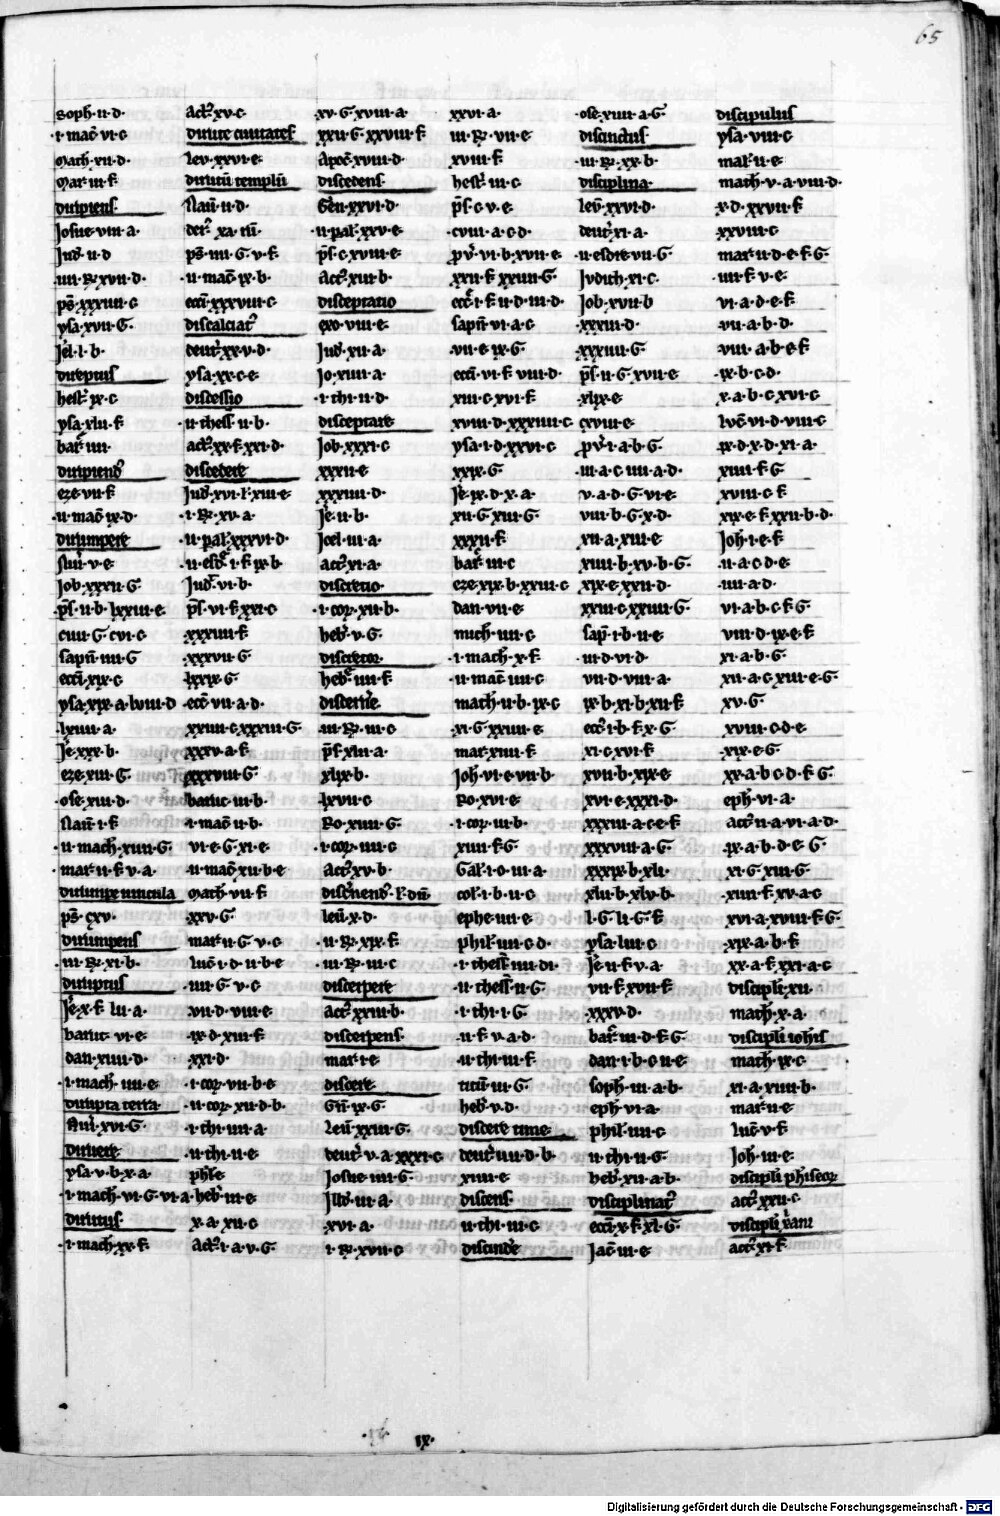 65
Soph· ii· d·
i· mac̄ vi· c
Math· xii· d·
Mar iii· f
diripiens·
Josue viii· a·
Jud· ii· d
iiii· R· xvii· d·
ps̄ xxxiiii· c
ysa· xvii· G·
Je· l· b·
direptus
hest· ix· c
ysa· xlii· f
bar· iiii·
diripiend᷒
eze· vii· f
ii· mac̄ ix· d·
dirumpere
Nu· v· e
Job· xxxii· G
ps̄ ii· b· lxxiii· e
ciiii· G· cvi· c
sapn̄ iiii· G
eccī xix· c
ysa xix· a· lviii· d
lxiiii· a·
Je· xxx· b·
eze xiii· G
ose· xiii· d·
Nau· i· f
ii· mach· xiiii· G·
mar· ii· f· v· a·
dirumpe vincula
ps̄· cxv·
dirumpens
iii· R· xi· b·
diruptus
Je· x· f· lii· a·
baruc· vi· e·
dan· xiiii· d·
i· mach· iiii· e
dirupta terra
Nu· xvi· G·
diruere
ysa· v· b· x· a·
i· mach· vi· G· vi· a·
dirutus
i· mach· xx· f
Act᷒ xv· c·
dirute ciuitates
Lev· xxvi· e·
dirutū templū
Nau· ii· d·
ps̄· iiii· G· v· f·
ii· mac̄ ix· b·
eccī xxxviii· c
discalciat᷒
deut· xx· v· d·
ysa· xx· c· e
discessio
ii· thess· ii· b·
act᷒ xx· f· xxi· d·
discedere
Jud· xvi· f· xiii· e
i· R· xv· a·
ii· pal· xxxvi· d·
ii· esd· i· f· ix· b·
Jud· vi· b·
ps̄· vi· f· xxi· c
xxxiiii· f
xxxvii· G
lxxix· G
ecc̄ vii· a· d·
xxiiii· c· xxxiii· G·
xxxv· a· f·
xxxviii· G·
baruc· iii· b·
i· mac̄ ii· b·
vi· e· G· xi· e·
ii· mac̄ xii· b· e
Math· vii· f
xxv· G·
mar· ii· G· v· c
luc̄ i· d· ii· b· e
iiii· G· v· c
vii· d· viii· e
ix· d· xiii· f
xxi· d·
i· cor· vii· b· e
ii· cor· xii· d· b·
i· thi· iiii· a
ii· thi· ii· e
phl̄e
heb· iii· e
x· a· xii· c
Act᷒ i· a· v· G·
xv· G· xviii· a·
xxii· G· xxviii· f
Apoc̄ xviii· d·
discedens
Gen· xxvi· d·
ii· pal· xxv· e
ps̄· c· xviii· e·
Act· xiii· b·
disceptatio
exo· viii· e·
Jud· xii· a·
Jo· xiiii· a·
i· thi· ii· d·
disceptare
Job· xxxi· c
xxxii· e
xxxiiii· d·
Je· ii· b·
Joel· iii· a·
act᷒ xi· a·
discretio
i· cor· xii· b·
heb· v· G·
discretor
heb· iiii· f·
iii· R· iii· c
ps̄ xlii· a·
xlix· b·
lxvii· c
Ro· xiiii· G·
i· cor· iiii· c
act᷒ xv· b·
leū· x· d·
ii· R· xix· f
iii· R· iii· c
discerpere
act᷒ xxiii· b·
discerpens
mar· i· e
discere
Gn̄· ix· G·
Leū· xxiii· G·
deut· v· a· xxxi· c
Josue iiii· G·
Jud· iii· a·
xvi· a·
i· R· xvii· c
xxvi· a·
iii· R· vii· e
xviii· f
hest· iii· c
ps̄· c· v· e·
cviii· a· c· d·
pv· vi· b· xvii· e
xxii· f· xxiiii· G·
ecc̄· i· f· ii· d· iii· d·
sapn̄ vi· a· c·
vii· e· ix· G·
eccī· vi· f· viii· d·
xiii· c· xvi· f·
xviii· d· xxxiiii· c
ysa· i· d· xxvi· c
xxix· G·
Je· ix· d· x· a·
xii· G· xiii· G·
xxxii· f
bar· iii· c
eze· xix· b· xxiii· c
dan· vii· e
mich· iiii· c
i· mach· x· f·
ii· mac̄ iiii· c
math· ii· b· ix· c
xi· G· xxiiii· e
mar· xiiii· f
Joh· vi· e· vii· b·
Ro· xvi· e
i· cor· iii· b·
xiiii· f· G·
Gal· i· c· iii· a
col· i· b· ii· c
ephe· iiii· e
phil· iiii· c· d·
i· thess̄ iiii· d·
ii· thess̄· ii· G·
i· thi· i· G·
ii· f· v· a· d·
ii· thi· iii· f·
titū· iii· G·
heb· v· d·
discere time
deut· iiii· d· b·
xiiii· e
discens
ii· thi· iii· c
discinde
ose· xiiii· a· G·
discinctus
iii· R· xx· b·
disciplina·
Leū· xxvi· d·
deut· xi· a·
ii· esdre vii· G·
Judith· xi· c·
Job· xvii· b
xxxiii· d·
xxxiiii· G·
ps̄· ii· G· xvii· e
xlix· e
cxviii· e
pv· i· a· b· G·
iii· a· c· iiii· a· d·
v· a· d· G· vi· e·
viii· b· G· x· d·
xii· a· xiii· e·
xiiii· b· xv· b· G·
xix· e· xxii· d·
xxiii· c· xxiiii· G·
sap· i· b· ii· e
iii· d· vi· d·
vii· d· viii· a·
ix· b· xi· b· xii· f
ecc᷒· i· b· f· x· G·
xi· c· xvi· f·
xvii· b· xix· e
xvi· e· xxxi· d·
xxxiii· a· c· e· f
xxxviii· a· G·
xxxix· b· xli·
xlii· b· xlv· b·
l· G· li· G· f
ysa· liii· c
Je· ii· f· v· a·
vii· f· xvii· f
xxxv· d·
bar· iii· d· f· G·
dan· i· b· c· ii· e
soph· iii· a· b·
eph· vi· a·
phil· iiii· c
ii· thi· ii· G·
heb· xii· a· b·
disciplinat᷒
eccī· x· f· xl· G·
Jac̄ iii· e
discipulus
ysa· viii· c
mal· ii· e
math· v· a· viii· d·
x· d· xxvii· f
xxviii· c
mar· ii· d· e· f· G·
iiii· f· v· e·
vi· a· d· e· f·
vii· a· b· d·
viii· a· b· e· f
ix· b· c· d·
x· a· b· c· xvi· c
luc̄ vi· d· viii· c
ix· d· x· d· xi· a·
xiiii· f· G
xviii· c· f
xix· e· f· xxii· b· d·
Joh· i· e· f
ii· a· c· d· e
iiii· a· d·
vi· a· b· c· f· G
viii· d· ix· e· f
xi· a· b· G·
xii· a· c· xiii· e· G·
xv· G·
xviii· c· d· e
xix· e· G·
xx· a· b· c· d· f· G·
eph· vi· a·
act᷒ ii· a· vi· a· d·
ix· a· b· d· e· G·
xi· G· xiii· G·
xiiii· f· xv· a· c
xvi· a· xviii· f· G
xix· a· b· f
xx· a· f· xxi· a· c
discipli xii·
math· x· a·
discipli iohīs
math· ix· c·
xi· a· xiiii· b·
mar· ii· e
luc̄ v· f
Joh· iii· e·
discipli phiseor
act᷒ xxii· c
discipli xāni
act᷒ xi· f
ix·
Digitalisierung gefördert durch die Deutsche Forschungsgemeinschaft - DFG